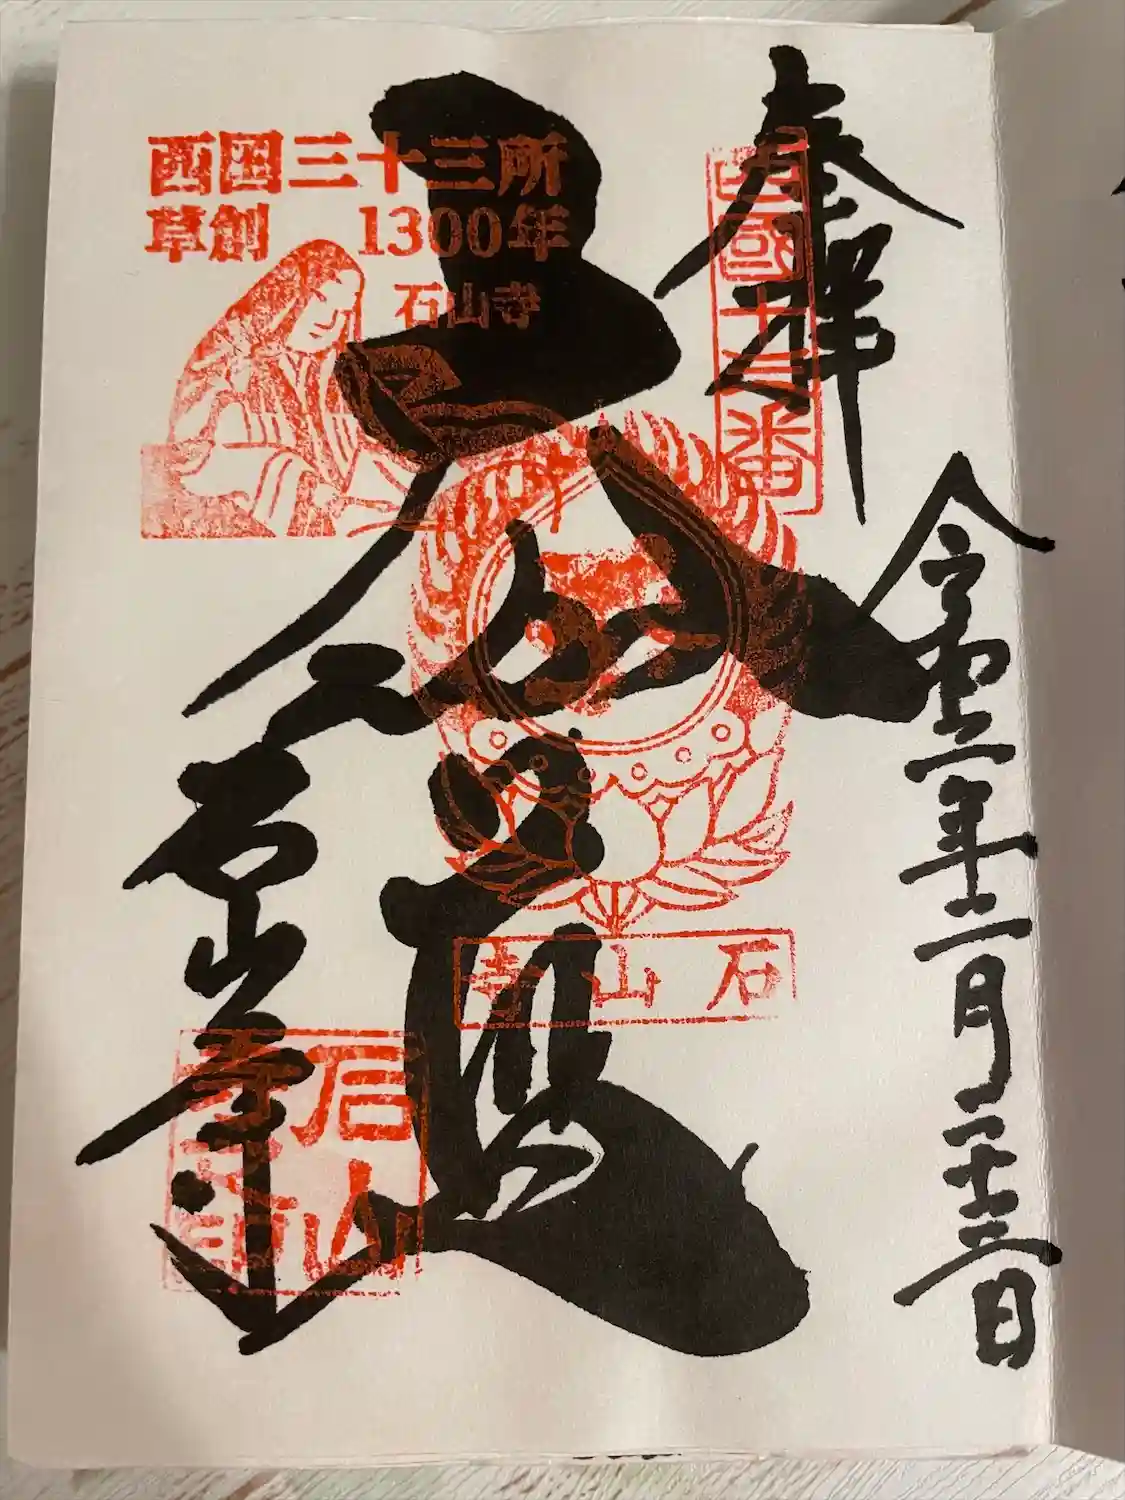 奉拝
西國十三番
令和二年二月二十三日
西国三十三所
草創 1300年
石山寺
石山寺
石山寺
石山
寺印